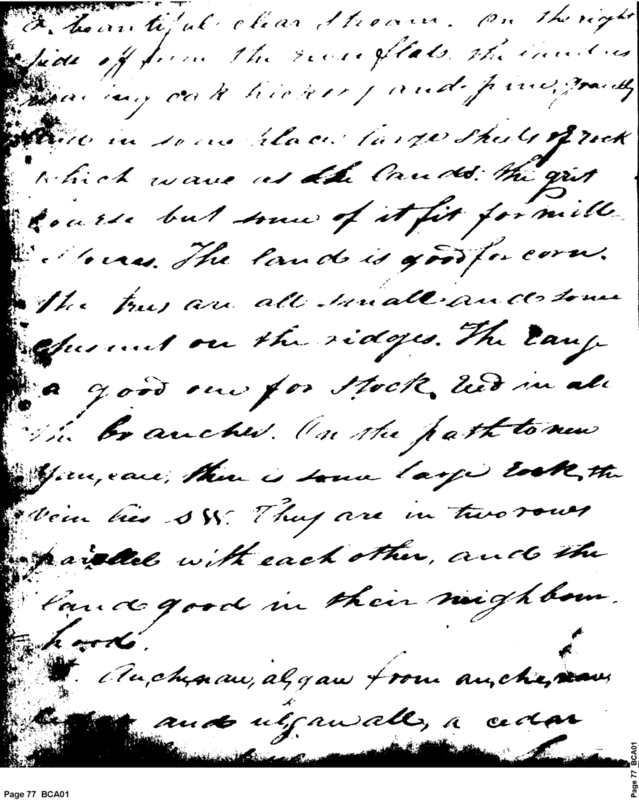 a beautiful clear stream. On the right
side off from the river flats the land is
oak hickory and pine, gravelly
and in some places large sheets of rock
which wave as the land. the grit
course but some of it fit for mill
stones. The land is good for corn.
the trees are all small and some
chesnut on the ridges. The range
a good one for stock. Reed in all
the branches. On the path to new
yau,cau, there is some large rock, the
vein lies S W. They are in two rows
parallel with each other, and the
land good in their neighbour-
hood.
Au,che,nau,ul,gau from au,che,nau,
cedar and ul,gau all, a cedar
Page 77 BCA01
Page 77 BCA01